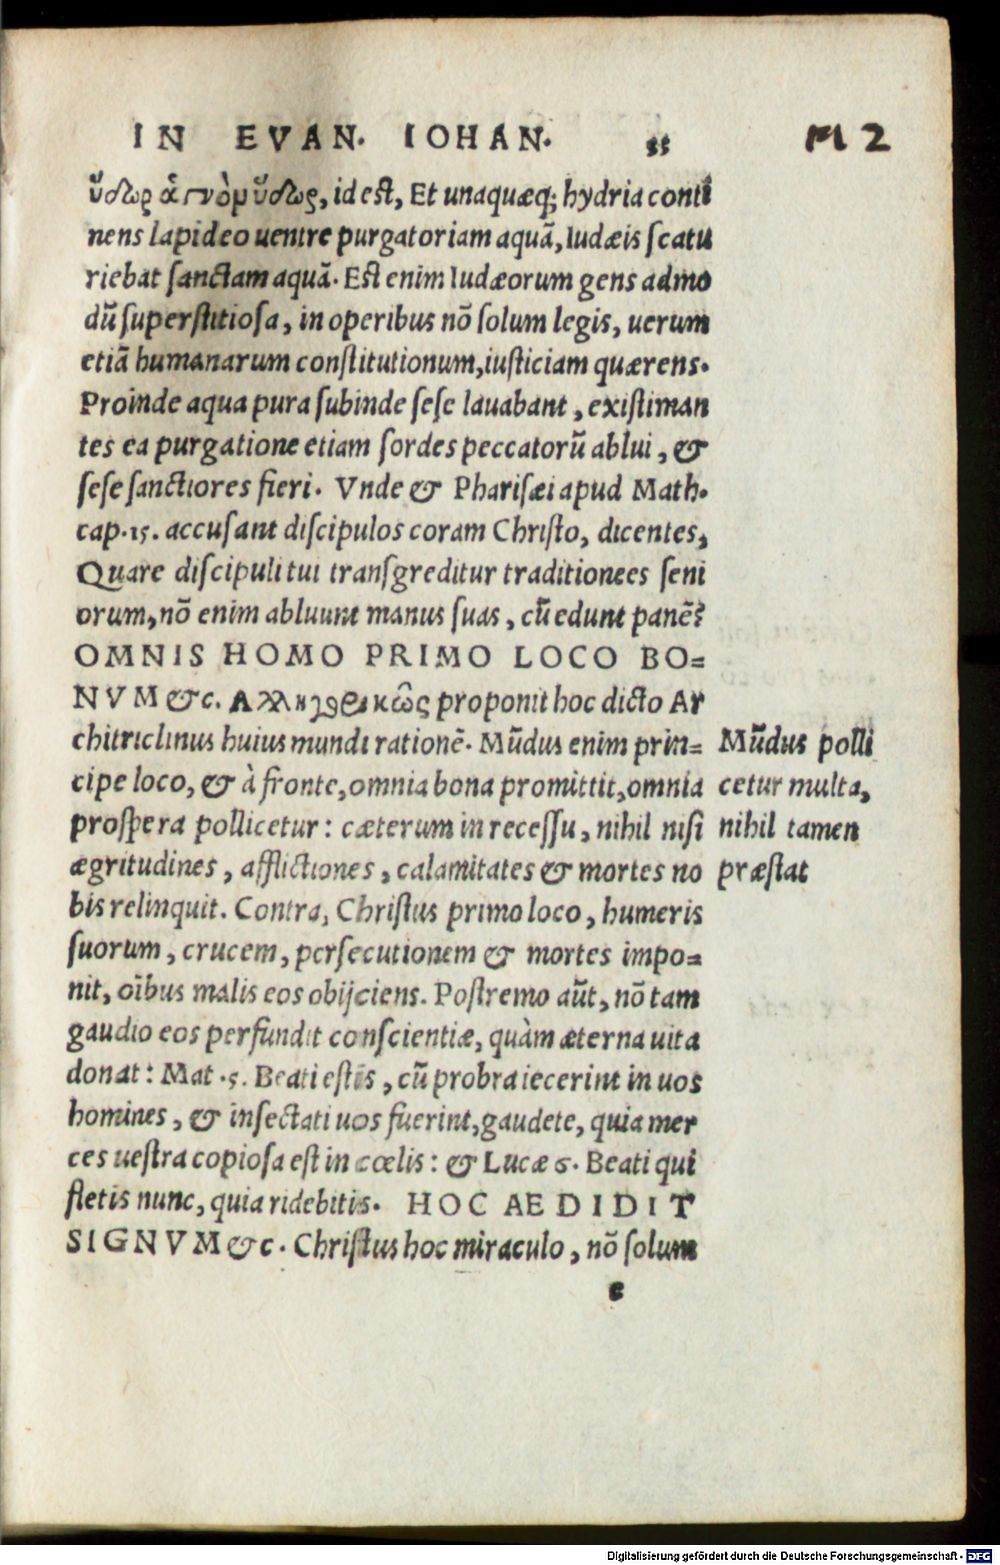 IN EVAN. IOHAN. 33
M 2
ὕδωρ ἁγνὸμ ὕδωρ, id est, Et unaquæq; hydria conti
nens lapideo uentre purgatoriam aquā, Iudæis scatu
riebat sanctam aquā. Est enim Iudæorum gens admo
dū superstitiosa, in operibus nō solum legis, uerum
etiā humanarum constitutionum, iusticiam quærens.
Proinde aqua pura subinde sese lauabant, existiman
tes ea purgatione etiam sordes peccatorū ablui, &
sese sanctiores fieri. Vnde & Pharisæi apud Math.
cap.15. accusant discipulos coram Christo, dicentes,
Quare discipuli tui transgreditur traditionees seni
orum, nō enim abluunt manus suas, cū edunt panē?
OMNIS HOMO PRIMO LOCO BO=
NVM &c. proponit hoc dicto Ar
chitriclinus huius mundi rationē. Mūdus enim prin=
cipe loco, & à fronte, omnia bona promittit, omnia
prospera pollicetur: cæterum in recessu, nihil nisi
ægritudines, afflictiones, calamitates & mortes no
bis relinquit. Contra, Christus primo loco, humeris
suorum, crucem, persecutionem & mortes impo=
nit, oībus malis eos obijciens. Postremo aūt, nō tam
gaudio eos perfundit conscientiæ, quàm æterna uita
donat: Mat .5. Beati estis, cū probra iecerint in uos
homines, & insectati uos fuerint, gaudete, quia mer
ces uestra copiosa est in cœlis: & Lucæ 6. Beati qui
fletis nunc, quia ridebitis. HOC AEDIDIT
SIGNVM &c. Christus hoc miraculo, nō solum
e
Mūdus polli
cetur multa,
nihil tamen
præstat
Digitalisierung gefördert durch die Deutsche Forschungsgemeinschaft - DFG